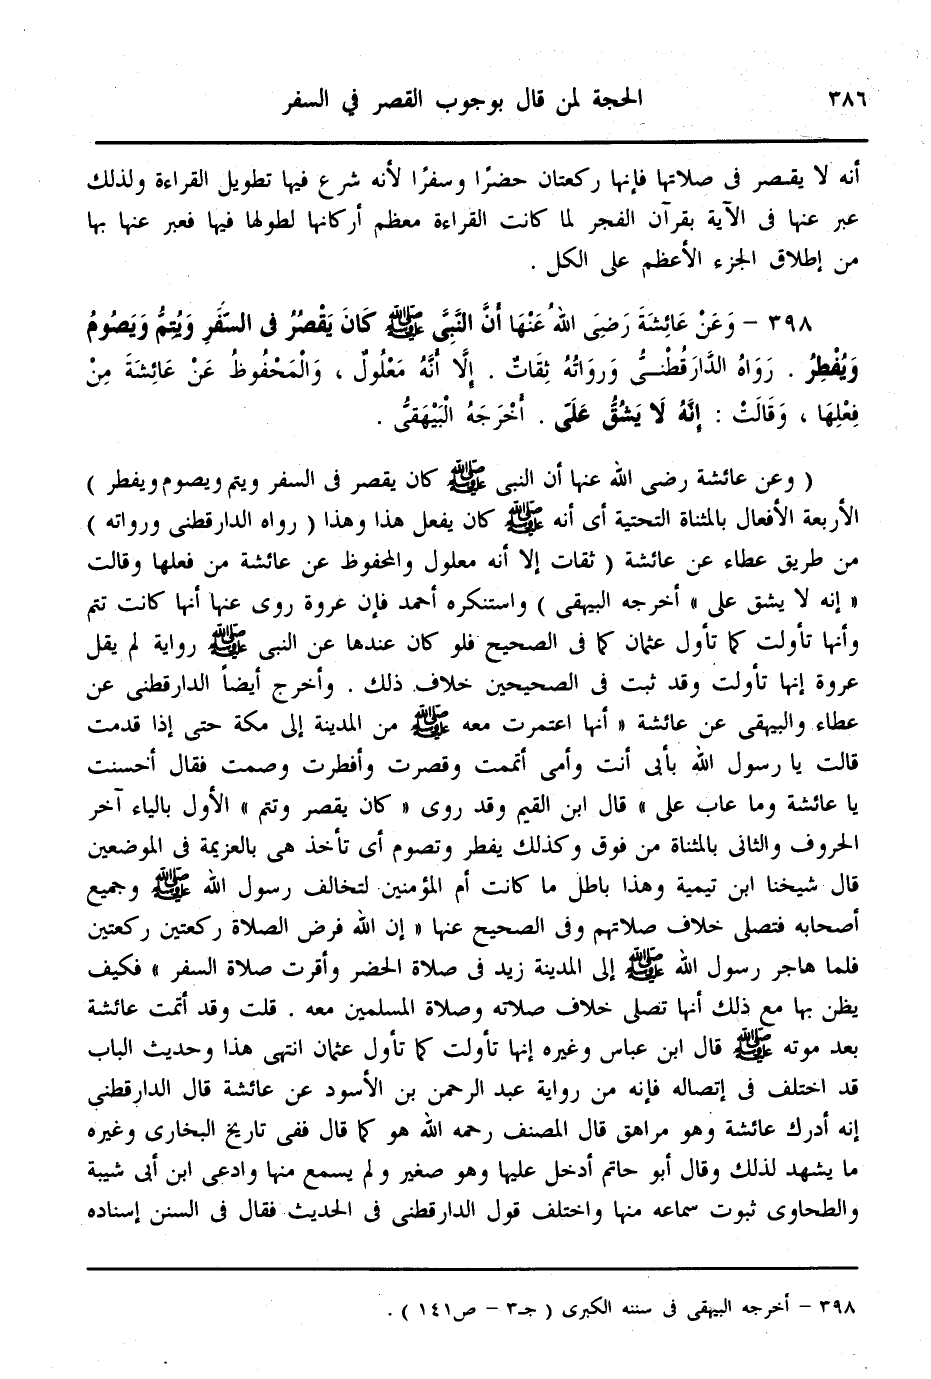 ٣٨٦ الحجة لمن قال بوجوب القصر في السفر
أنه لا يقصر فى صلاتها فإنها ركعتان حضرًا وسفرًا لأنه شرع فيها تطويل القراءة ولذلك
عبر عنها فى الآية بقرآن الفجر لما كانت القراءة معظم أركانها لطولها فيها فعبر عنها بها
من إطلاق الجزء الأعظم على الكل .
٣٩٨ – وَعَنْ عَائِشَةَ رَضِىَ اللهُ عَنْهَا أَنَّ النَّبِىَّ ﷺ كَانَ يَقْصُرُ فى السَّفَرِ وَيُتِمُّ وَيَصُومُ
وَيُفْطِرُ . رَوَاهُ الدَّارَقُطْنِىُّ وَرَوَاتُهُ ثِقَاتٌ . إِلَّا أَنَّهُ مَعْلُولٌ ، وَالْمَحْفُوظُ عَنْ عَائِشَةَ مِنْ
فِعْلِهَا ، وَقَالَتْ : إِنَّهُ لَا يَشُقُّ عَلَىَّ . أَخْرَجَهُ الْبَيْهَقىُّ .
( وعن عائشة رضى الله عنها أن النبى ﷺ كان يقصر فى السفر ويتم ويصوم ويفطر )
الأربعة الأفعال بالمثناة التحتية أى أنه ﷺ كان يفعل هذا وهذا ( رواه الدارقطنى ورواته )
من طريق عطاء عن عائشة ( ثقات إلا أنه معلول والمحفوظ عن عائشة من فعلها وقالت
« إنه لا يشق على » أخرجه البيهقى ) واستنكره أحمد فإن عروة روى عنها أنها كانت تتم
وأنها تأولت كما تأول عثمان كما فى الصحيح فلو كان عندها عن النبى ﷺ رواية لم يقل
عروة إنها تأولت وقد ثبت فى الصحيحين خلاف ذلك . وأخرج أيضاً الدارقطنى عن
عطاء والبيهقى عن عائشة « أنها اعتمرت معه ﷺ من المدينة إلى مكة حتى إذا قدمت
قالت يا رسول الله بأبى أنت وأمى أتممت وقصرت وأفطرت وصمت فقال أحسنت
يا عائشة وما عاب على » قال ابن القيم وقد روى « كان يقصر وتتم » الأول بالياء آخر
الحروف والثانى بالمثناة من فوق وكذلك يفطر وتصوم أى تأخذ هى بالعزيمة فى الموضعين
قال شيخنا ابن تيمية وهذا باطل ما كانت أم المؤمنين لتخالف رسول الله ﷺ وجميع
أصحابه فتصلى خلاف صلاتهم وفى الصحيح عنها « إن الله فرض الصلاة ركعتين ركعتين
فلما هاجر رسول الله ﷺ إلى المدينة زيد فى صلاة الحضر وأقرت صلاة السفر » فكيف
يظن بها مع ذلك أنها تصلى خلاف صلاته وصلاة المسلمين معه . قلت وقد أتمت عائشة
بعد موته ﷺ قال ابن عباس وغيره إنها تأولت كما تأول عثمان انتهى هذا وحديث الباب
قد اختلف فى إتصاله فإنه من رواية عبد الرحمن بن الأسود عن عائشة قال الدارقطني
إنه أدرك عائشة وهو مراهق قال المصنف رحمه الله هو كما قال ففى تاريخ البخارى وغيره
ما يشهد لذلك وقال أبو حاتم أدخل عليها وهو صغير ولم يسمع منها وادعى ابن أبى شيبة
والطحاوى ثبوت سماعه منها واختلف قول الدارقطنى فى الحديث فقال فى السنن إسناده
٣٩٨ – أخرجه البيهقى فى سننه الكبرى ( جـ٣ – ص١٤١ ) .